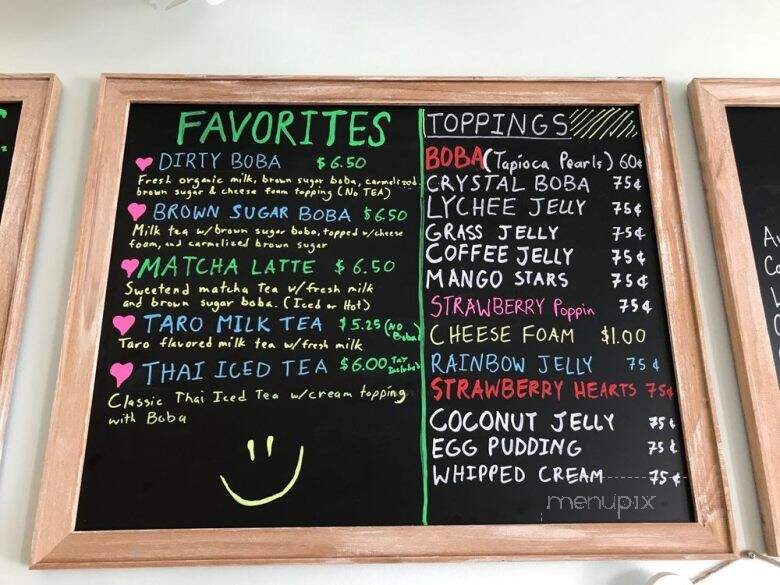 FAVORITES
DIRTY BOBA $6.50
Fresh organic milk, brown sugar boba, carmelized
brown sugar & cheese foam topping (No TEA)
BROWN SUGAR BOBA $6.50
Milk tea w/brown sugar boba, topped w/cheese
foam, and carmelized brown sugar
MATCHA LATTE $6.50
Sweetend matcha Tea w/fresh milk
and brown sugar boba. (Iced or Hot)
TARO MILK TEA $5.25 (NO Boba)
Taro flavored milk tea w/fresh milk
THAI ICED TEA $6.00 Tax Included
Classic Thai Iced Tea w/cream topping
with Boba
TOPPINGS
BOBA (Tapioca Pearls) 60¢
CRYSTAL BOBA 75¢
LYCHEE JELLY 75¢
GRASS JELLY 75¢
COFFEE JELLY 75¢
MANGO STARS 75¢
STRAWBERRY Poppin 75¢
CHEESE FOAM $1.00
RAINBOW JELLY 75¢
STRAWBERRY HEARTS 75¢
COCONUT JELLY 75¢
EGG PUDDING 75¢
WHIPPED CREAM 75¢
menupix